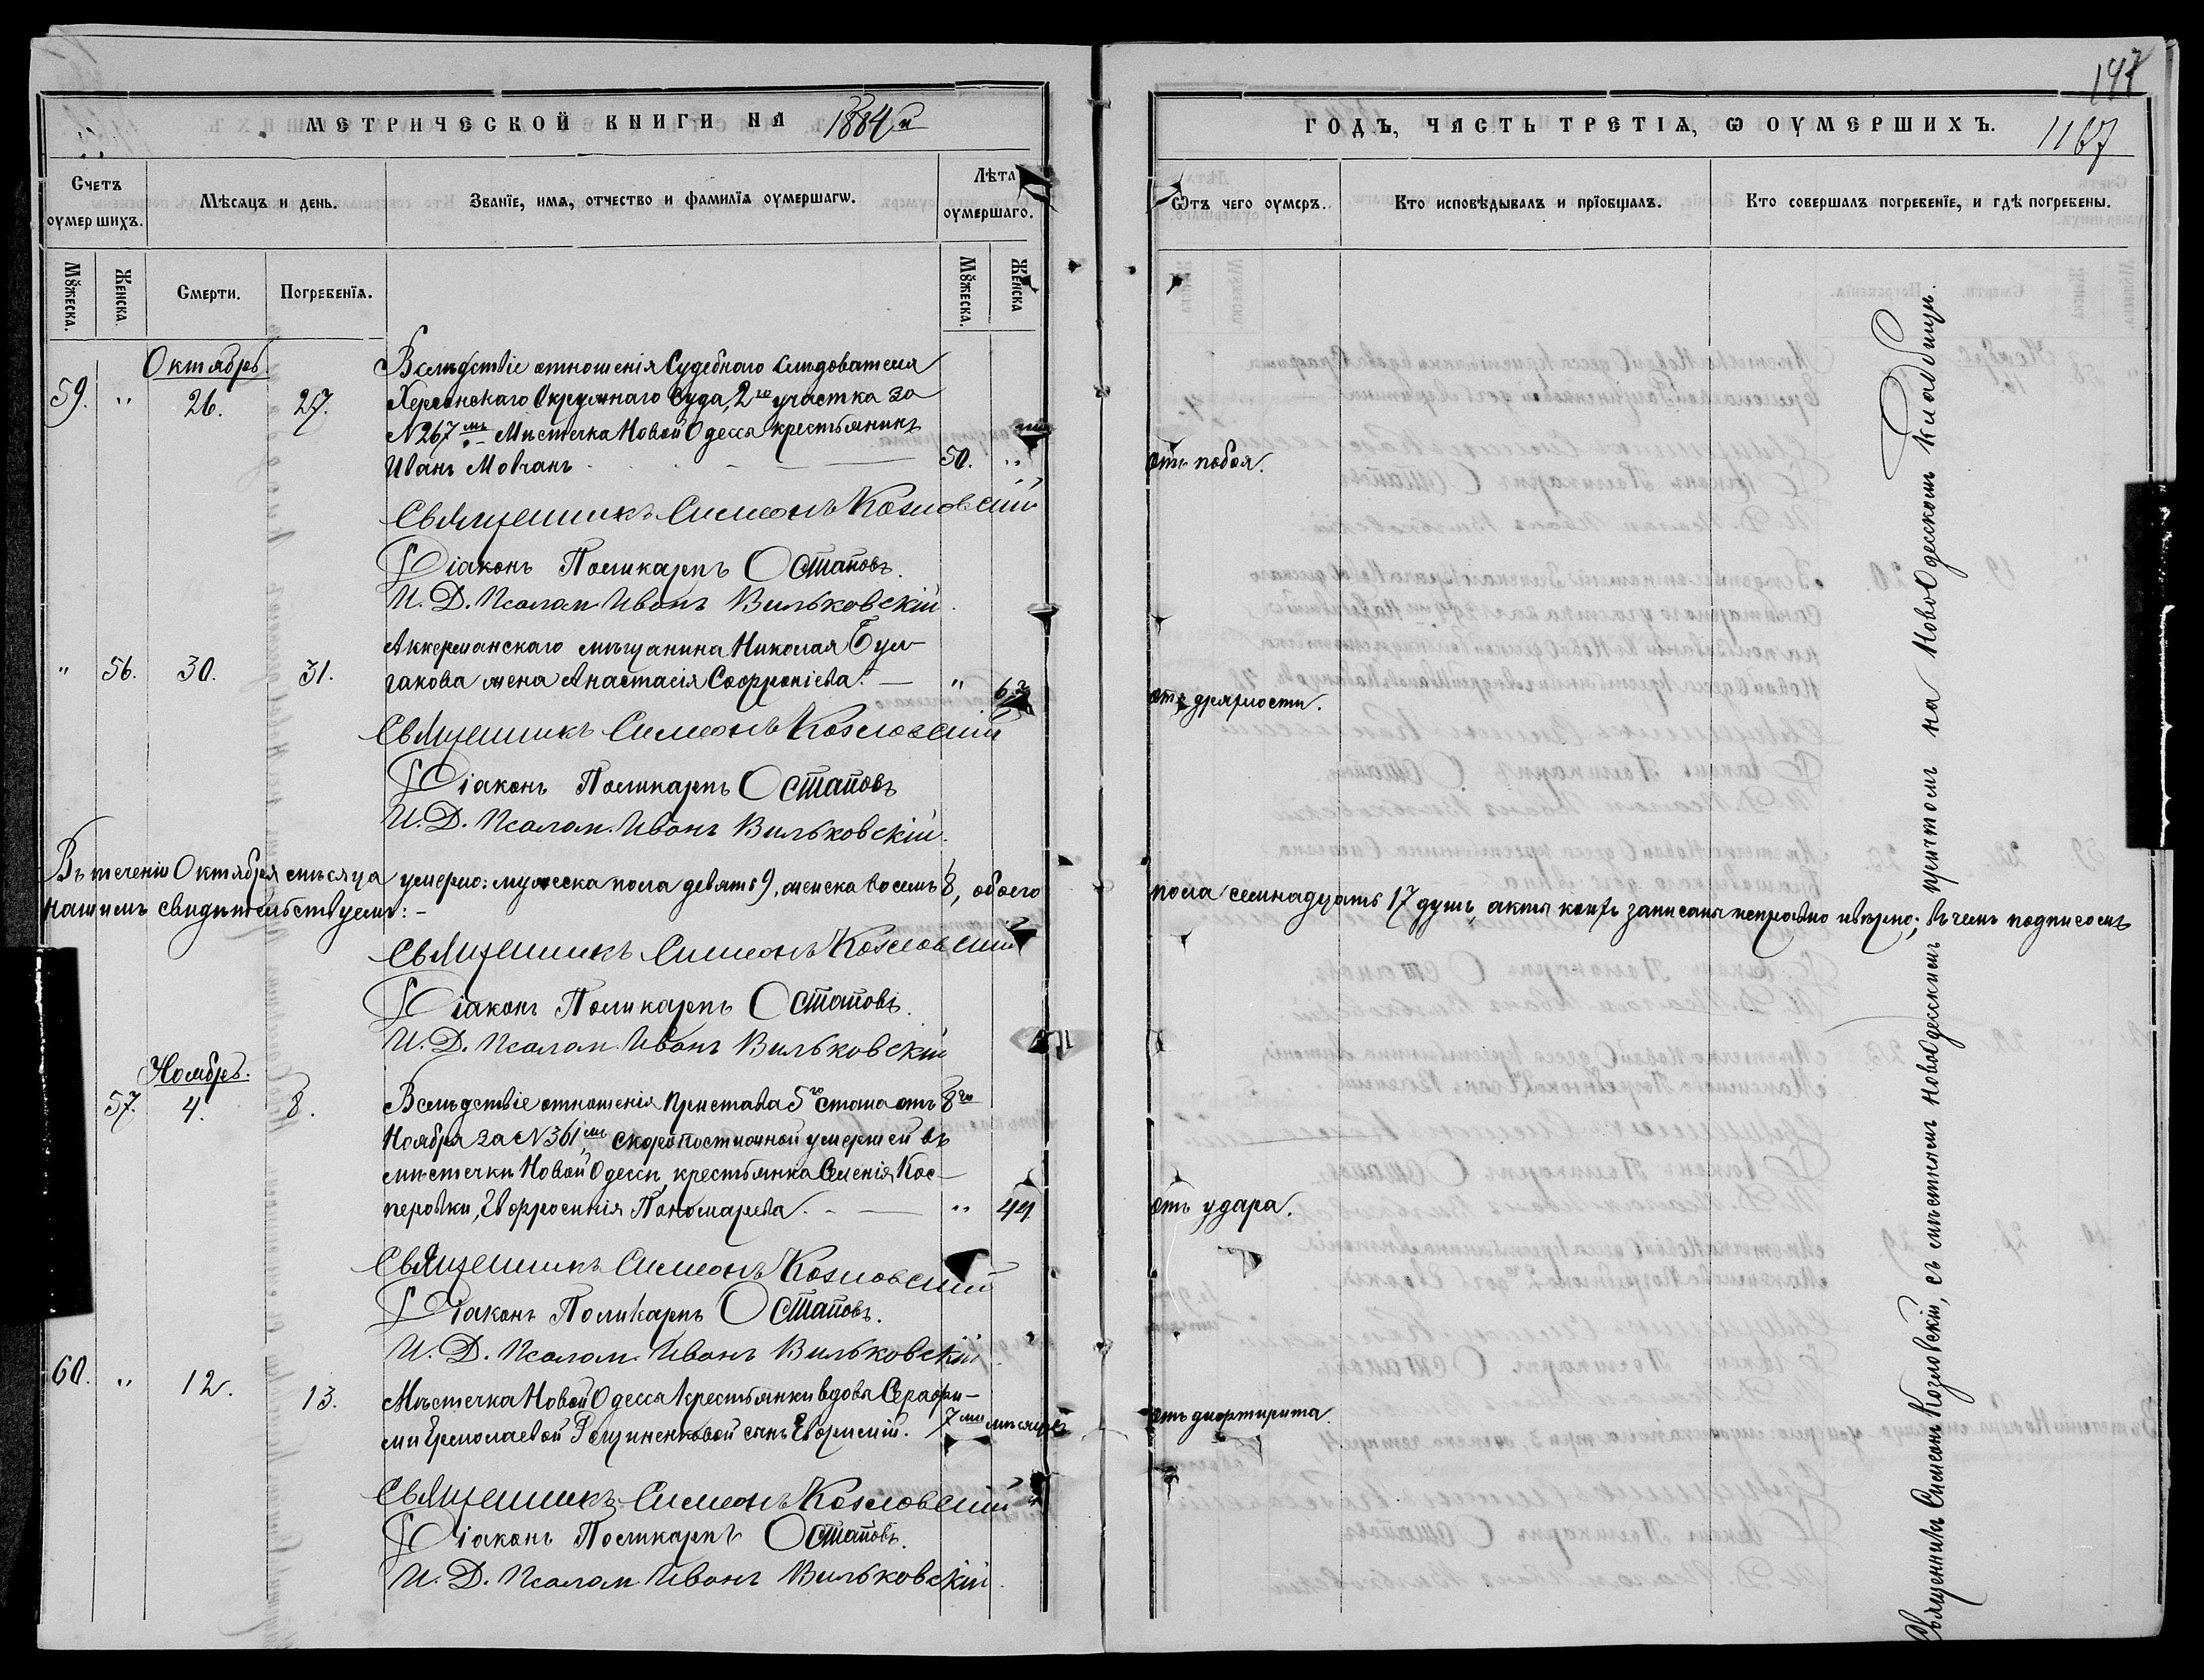 МЕТРИЧЕСКОЙ КНИГИ НА 1884й
Счетъ оумершихъ.
Мѣсяцъ и день.
Званїе, имѧ, отчество и фамилїѧ оумершагѡ.
Лѣта оумершаго.
Мꙋжеска.
Женска.
Смерти.
Погребенїѧ.
Мꙋжеска.
Женска
Октябрь
59. " 26. 27. Вслѣдствіе отношенія Судебнаго Слѣдователя
Херсонскаго Окружнаго Суда, 2го участка за
N267мъ Мѣстечка Новой Одессы крестьянинъ
Иванъ Мовчанъ. 50. "
Священникъ Симеонъ Козловскій
Діаконъ Поликарпъ Остаповъ.
И. Д. Псалом. Иванъ Вильковскій.
" 56. 30. 31. Аккерманскаго мѣщанина Николая Бул-
гакова жена Анастасія Софроніева. "
Священникъ Симеонъ Козловскій
Діаконъ Поликарпъ Остаповъ
И. Д. Псалом. Иванъ Вильковскій.
Въ теченіи Октября мѣсяца умерло: мужеска пола девять 9, женска восемь 8, обоего
нашимъ свидѣтельствуемъ: -
Священникъ Симеонъ Козловскій
Діаконъ Поликарпъ Остаповъ.
И. Д. Псалом. Иванъ Вильковскій
Ноябрь.
57. 4. 8. Вслѣдствіе отношенія Пристава 5го стана отъ 8го
Ноября за N361мъ скоропостижной умершей въ
мѣстечкѣ Новой Одессы, крестьянка Селенія Кас-
перовки, Евфросинія Пономарева. " 44
Священникъ Симеонъ Козловскій
Діаконъ Поликарпъ Остаповъ.
И. Д. Псалом. Иванъ Вильковскій.
60. " 12. 13. Мѣстечка Новой Одессы Крестьянки вдовы Серафи-
мы Ермолаевой сынъ Евфимій. 7ми мѣсяцевъ
Священникъ Симеонъ Козловскій
Діаконъ Поликарпъ Остаповъ.
И. Д. Псалом. Иванъ Вильковскій.
147
ГОДЪ, ЧАСТЬ ТРЕТІѦ, Ѡ ОУМЕРШИХЪ. 1167
Ѿтъ чего оумеръ.
Кто исповѣдывалъ и прїобщалъ.
Кто совершалъ погребенїе, и гдѣ погребены.
отъ побоя.
отъ дряхлости.
пола семнадцать 17 душъ, акты коихъ записаны исправно и вѣрно; въ чемъ подписомъ
отъ удара.
отъ дифтирита.
Священникъ Симеонъ Козловскій, съ мѣстнымъ новоОдесскимъ причтомъ на НовоОдесскомъ Кладбищи.